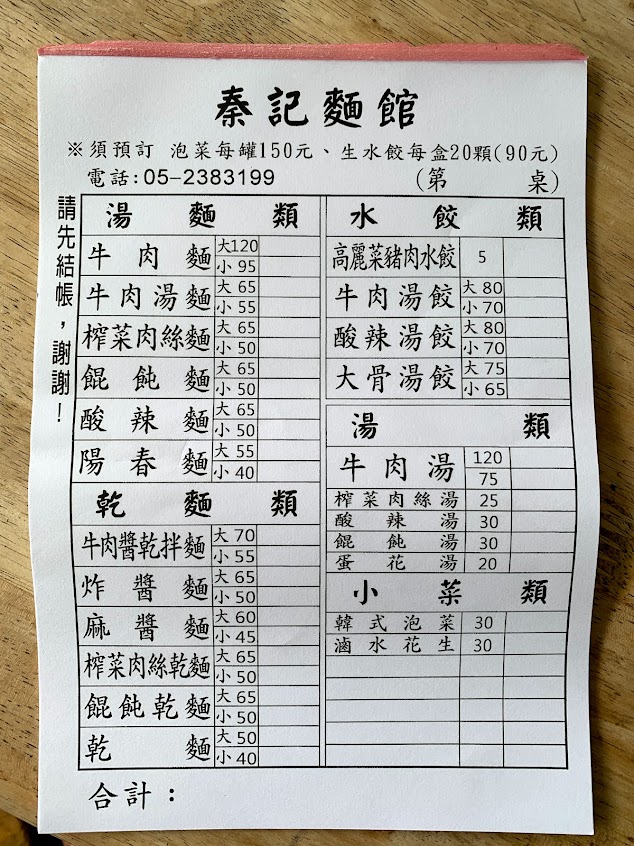 秦記麵館
※須預訂 泡菜每罐150元、生水餃每盒20顆(90元)
電話:05-2383199 (第 桌)
請先結帳，謝謝！
湯麵類
牛肉麵 大120 小95
牛肉湯麵 大65 小55
榨菜肉絲麵 大65 小50
餛飩麵 大65 小50
酸辣麵 大65 小50
陽春麵 大55 小40
乾麵類
牛肉醬乾拌麵 大70 小55
炸醬麵 大65 小50
麻醬麵 大60 小45
榨菜肉絲乾麵 大65 小50
餛飩乾麵 大65 小50
乾麵 大50 小40
水餃類
高麗菜豬肉水餃 5
牛肉湯餃 大80 小70
酸辣湯餃 大80 小70
大骨湯餃 大75 小65
湯類
牛肉湯 120 75
榨菜肉絲湯 25
酸辣湯 30
餛飩湯 30
蛋花湯 20
小菜類
韓式泡菜 30
滷水花生 30
合計：